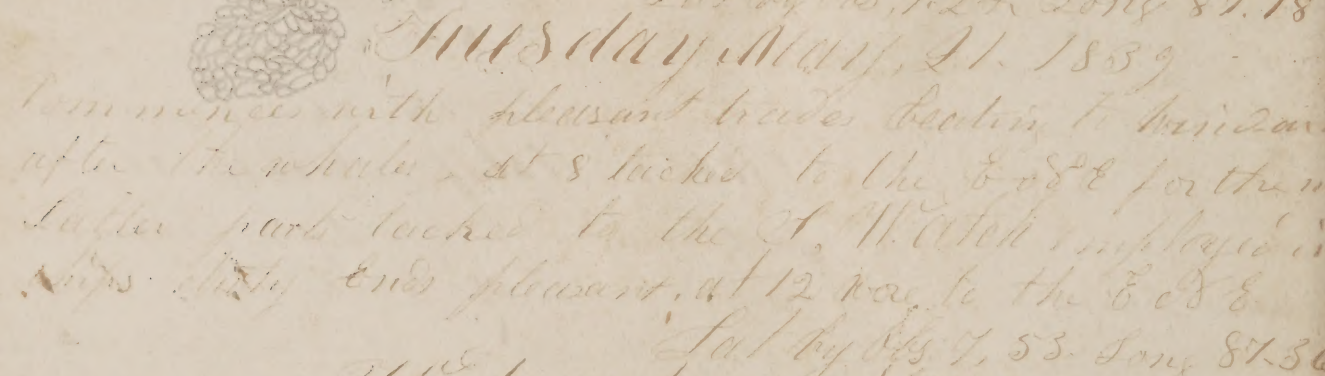 Lat by Obs, 7.27 Long 87.18
Tuesday May, 21. 1839
Commences with pleasant trades beating to windward
after the whales, at 8 tacked to the E & E for the n
Latter part tacked to the S. Watch employed in
ships duty Ends pleasant, at 12 wore to the E & E
Lat by Obs 7, 53. Long 87.36